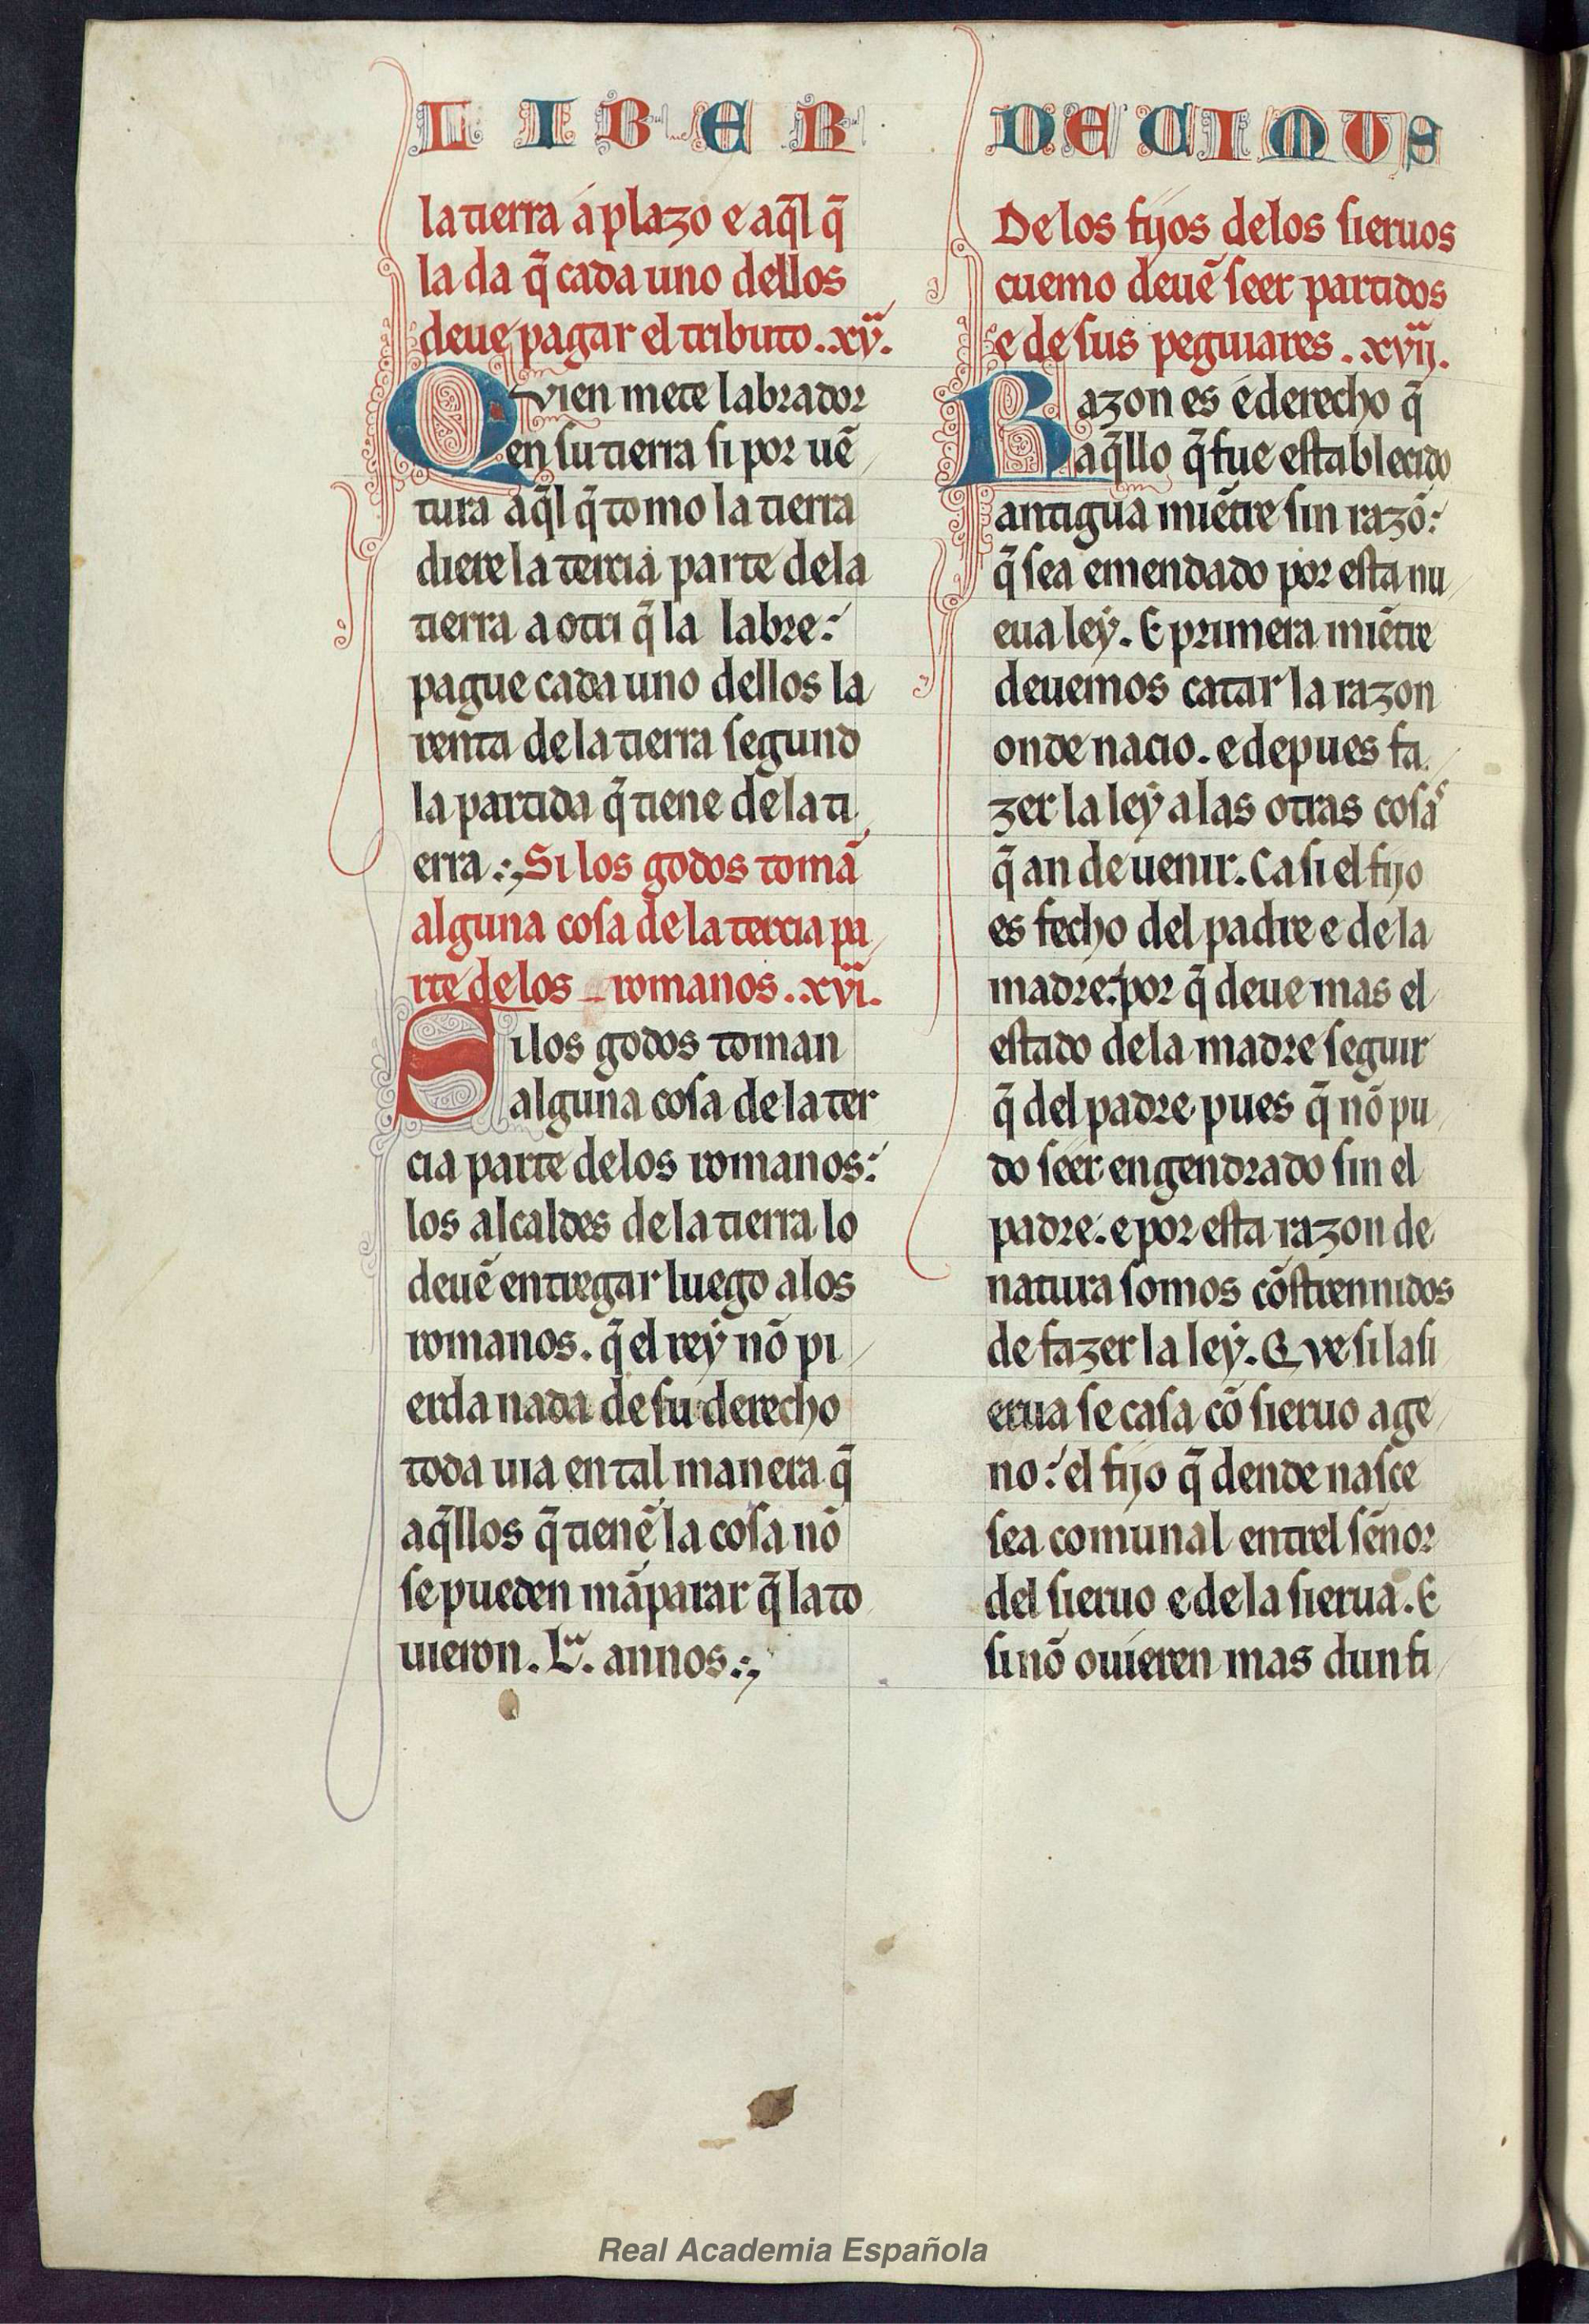 LIBER DECIMUS
la tierra a plazo e aq̃l q̃
la da q̃ cada uno dellos
deue pagar el tributo. xv.
Qvien mete labrador
en su tierra si por uẽ
tura aq̃l q̃ tomo la tierra
diere la tercia parte de la
tierra a otri q̃ la labre:
pague cada uno dellos la
renta de la tierra segund
la partida q̃ tiene de la ti
erra. Si los godos tomã
alguna cosa de la tercia pa
rte de los romanos. xvi.
Si los godos toman
alguna cosa de la ter
cia parte delos romanos:
los alcaldes de la tierra lo
deuẽ entregar luego a los
romanos. q̃ el rey nõ pi
erda nada de su derecho
toda uia en tal manera q̃
aq̃llos q̃ tienẽ la cosa nõ
se pueden mãparar q̃ la to
uieron. L. annos.
De los fijos de los sieruos
cuemo deuẽ seer partidos
e de sus peguiares. xvij.
Razon es e derecho q̃
aq̃llo q̃ fue establecido
antigua miẽtre sin razõ:
q̃ sea emendado por esta nu
eua ley. E primera miẽtre
deuemos catar la razon
onde nacio. e depues fa
zer la ley a las otras cosas
q̃ an de uenir. Ca si el fijo
es fecho del padre e de la
madre: por q̃ deue mas el
estado de la madre seguir
q̃ del padre pues q̃ nõ pu
do seer engendrado sin el
padre: e por esta razon de
natura somos cõstrennidos
de fazer la ley. Qve si la si
erua se casa cõ sieruo age
no: el fijo q̃ dende nasce
sea comunal entrel sẽnor
del sieruo e de la sierua. E
si nõ ouieren mas dun fi
Real Academia Española